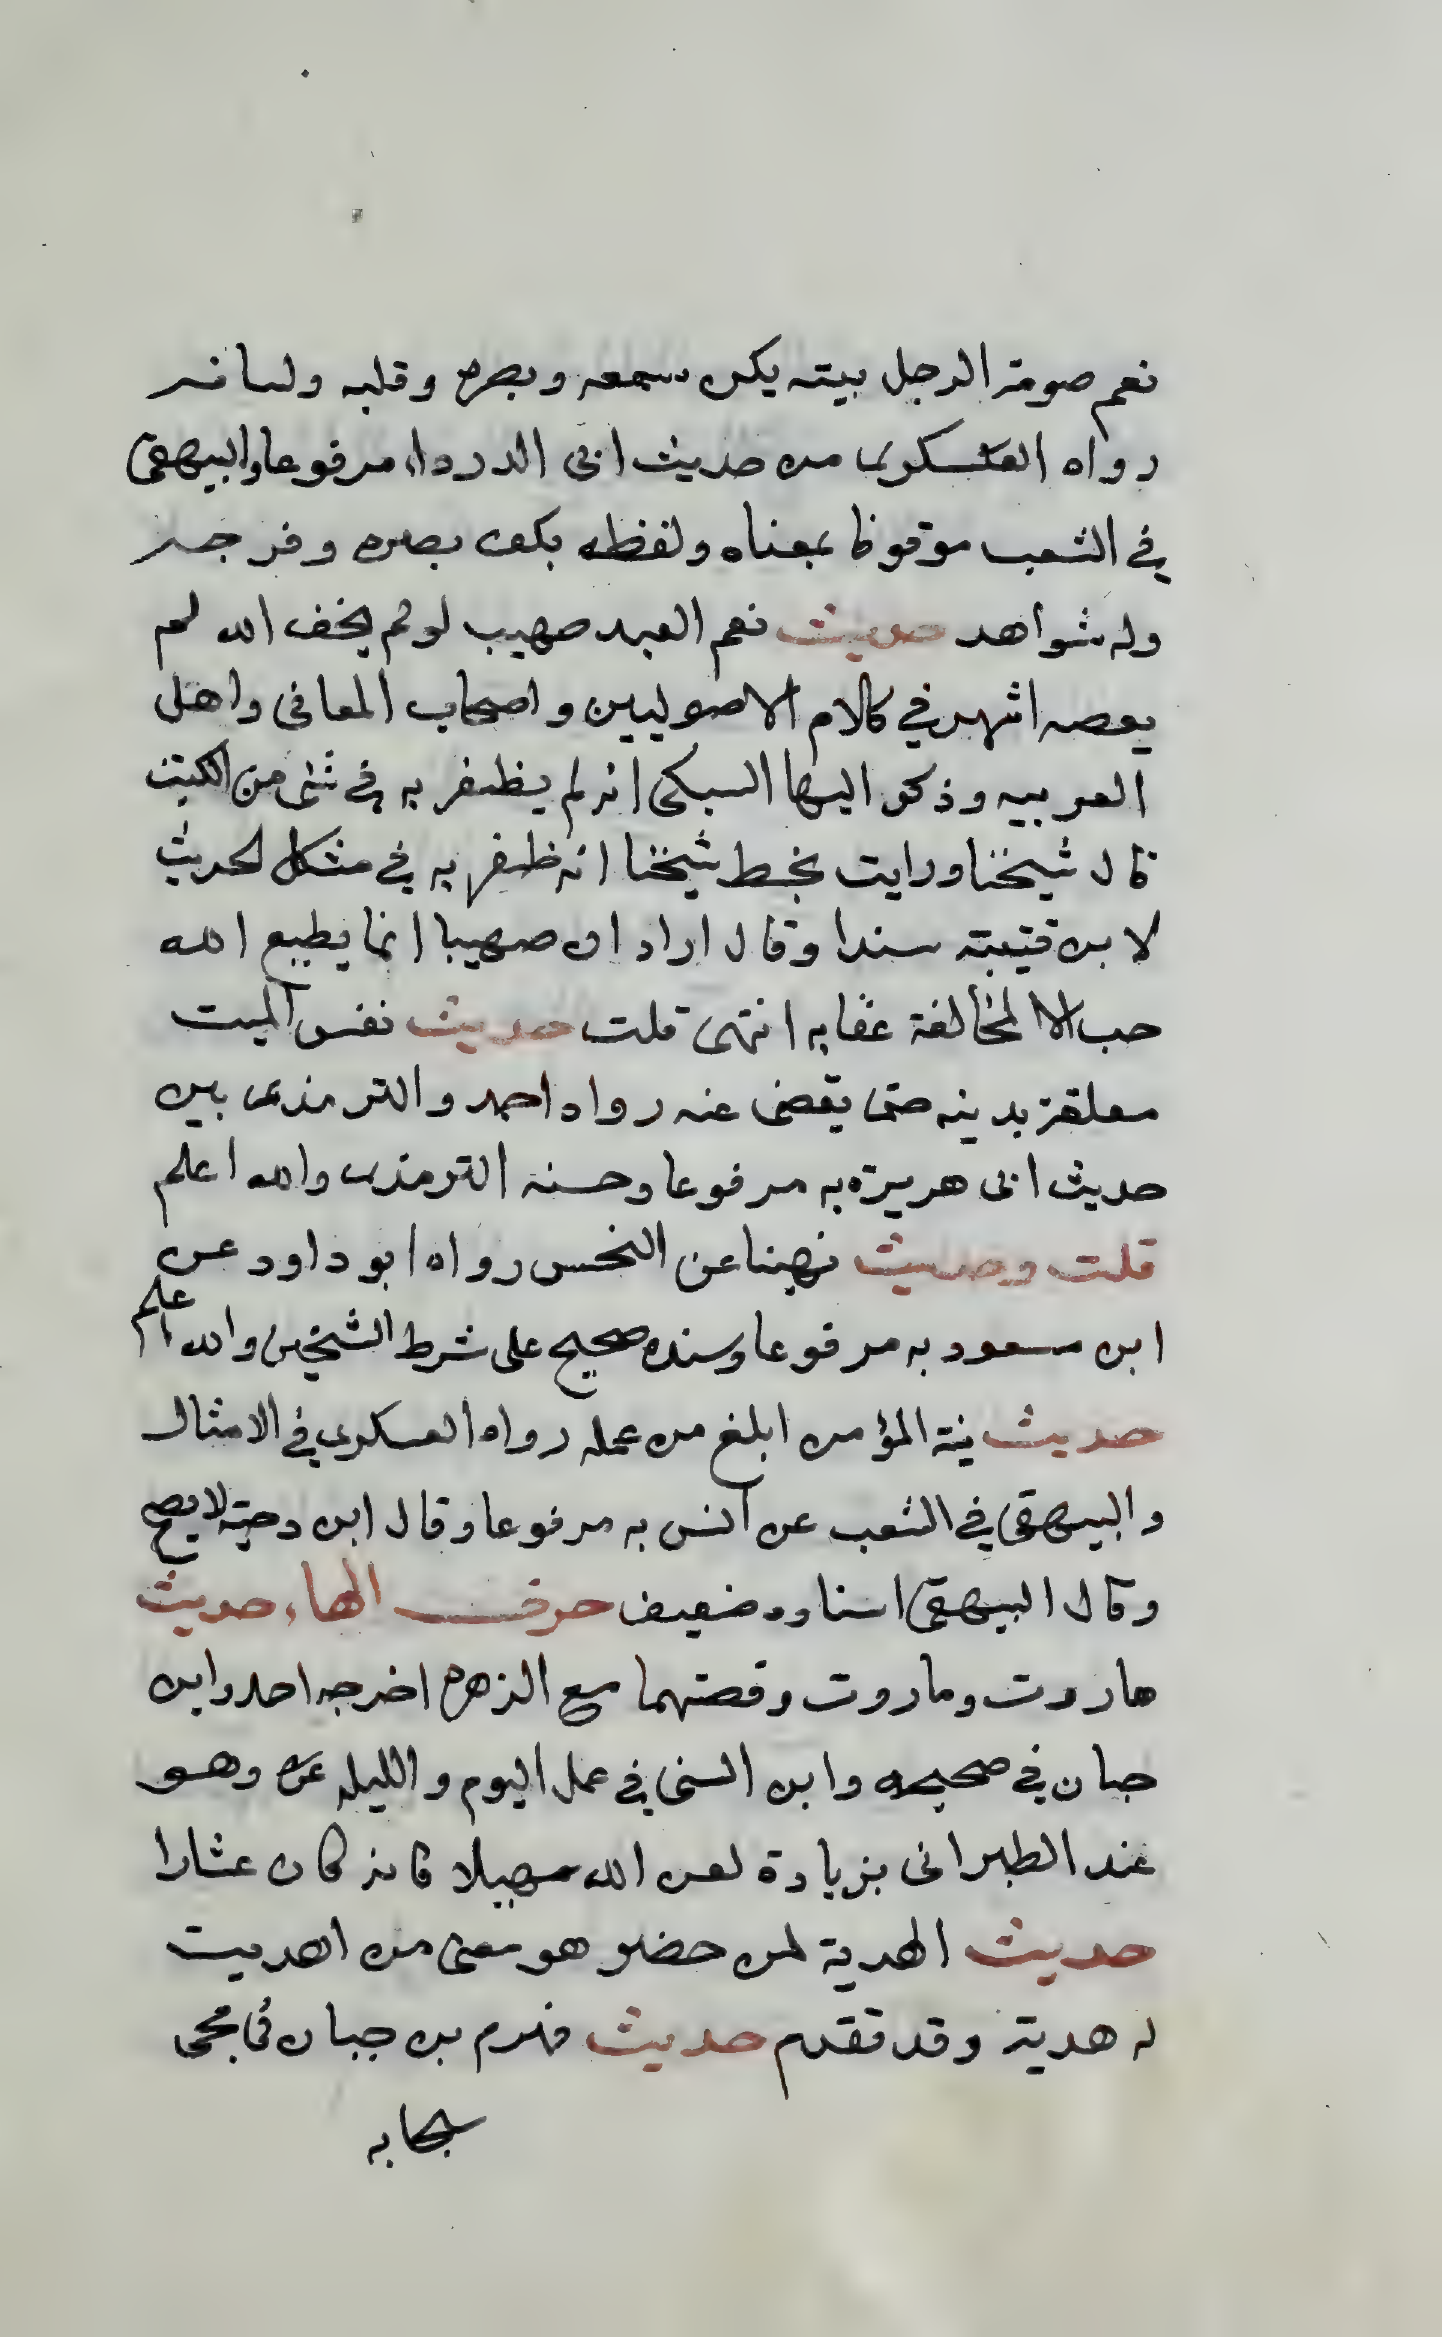 نعم صومة الرجل بيته يكن سمعه وبصره وقلبه ولسانه
رواه العسكرى من حديث ابى الدرداء مرفوعا والبيهقى
فى الشعب موقوفا بمعناه ولفظه يكف بصره وفرجه
وله شواهد حديث نعم العبد صهيب لو لم يخف الله لم
يعصه اشهر فى كلام الاصوليين واصحاب المعانى واهل
العربيه وذكر البها السبكى انه لم يظفر به فى شئ من الكتب
قال شيخنا ورايت بخط شيخنا انه ظفر به فى مشكل الحديث
لابن قتيبة سندا وقال اراد ان صهيبا انما يطيع الله
حبا لا لمخالفة عقابه انتهى قلت حديث نفس الميت
معلقة بدينه حتى يقضى عنه رواه احمد والترمذى بين
حديث ابى هريرة به مرفوعا وحسنه الترمذى والله اعلم
قلت وحديث نهينا عن النخس رواه ابو داود عن
ابن مسعود به مرفوعا وسنده صحيح على شرط الشيخين والله اعلم
حديث نية المؤمن ابلغ من عمله رواه العسكرى فى الامثال
والبيهقى فى الشعب عن انس به مرفوعا وقال ابن دحية لا يصح
وقال البيهقى اسناده ضعيف حرف الهاء حديث
هاروت وماروت وقصتهما مع الزهرة اخرجه احمد وابن
حبان فى صحيحه وابن السنى فى عمل اليوم والليله وهو
عند الطبرانى بزيادة لعن الله سهيلا فانه كان عشارا
حديث الهدية لمن حضر هو معنى من اهديت
له هدية وقد تقدم حديث هرم بن حبان فى مجى
سحابه